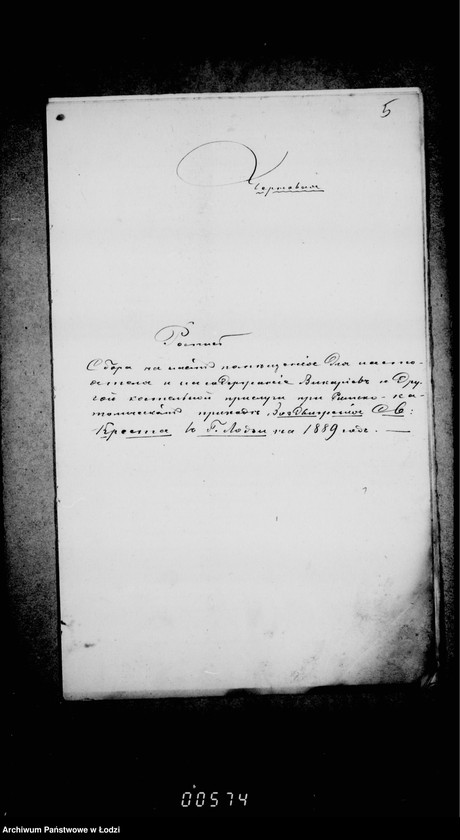 5
Черновик
Роспись
Сбора на наём помещения для насто-
ятеля и на содержание Викариев и Дру-
гой костельной прислуги при Римско-ка-
толическом приходе Воздвижения Св:
Креста в Г. Лодзи на 1889 год. —
00574
Archiwum Państwowe w Łodzi